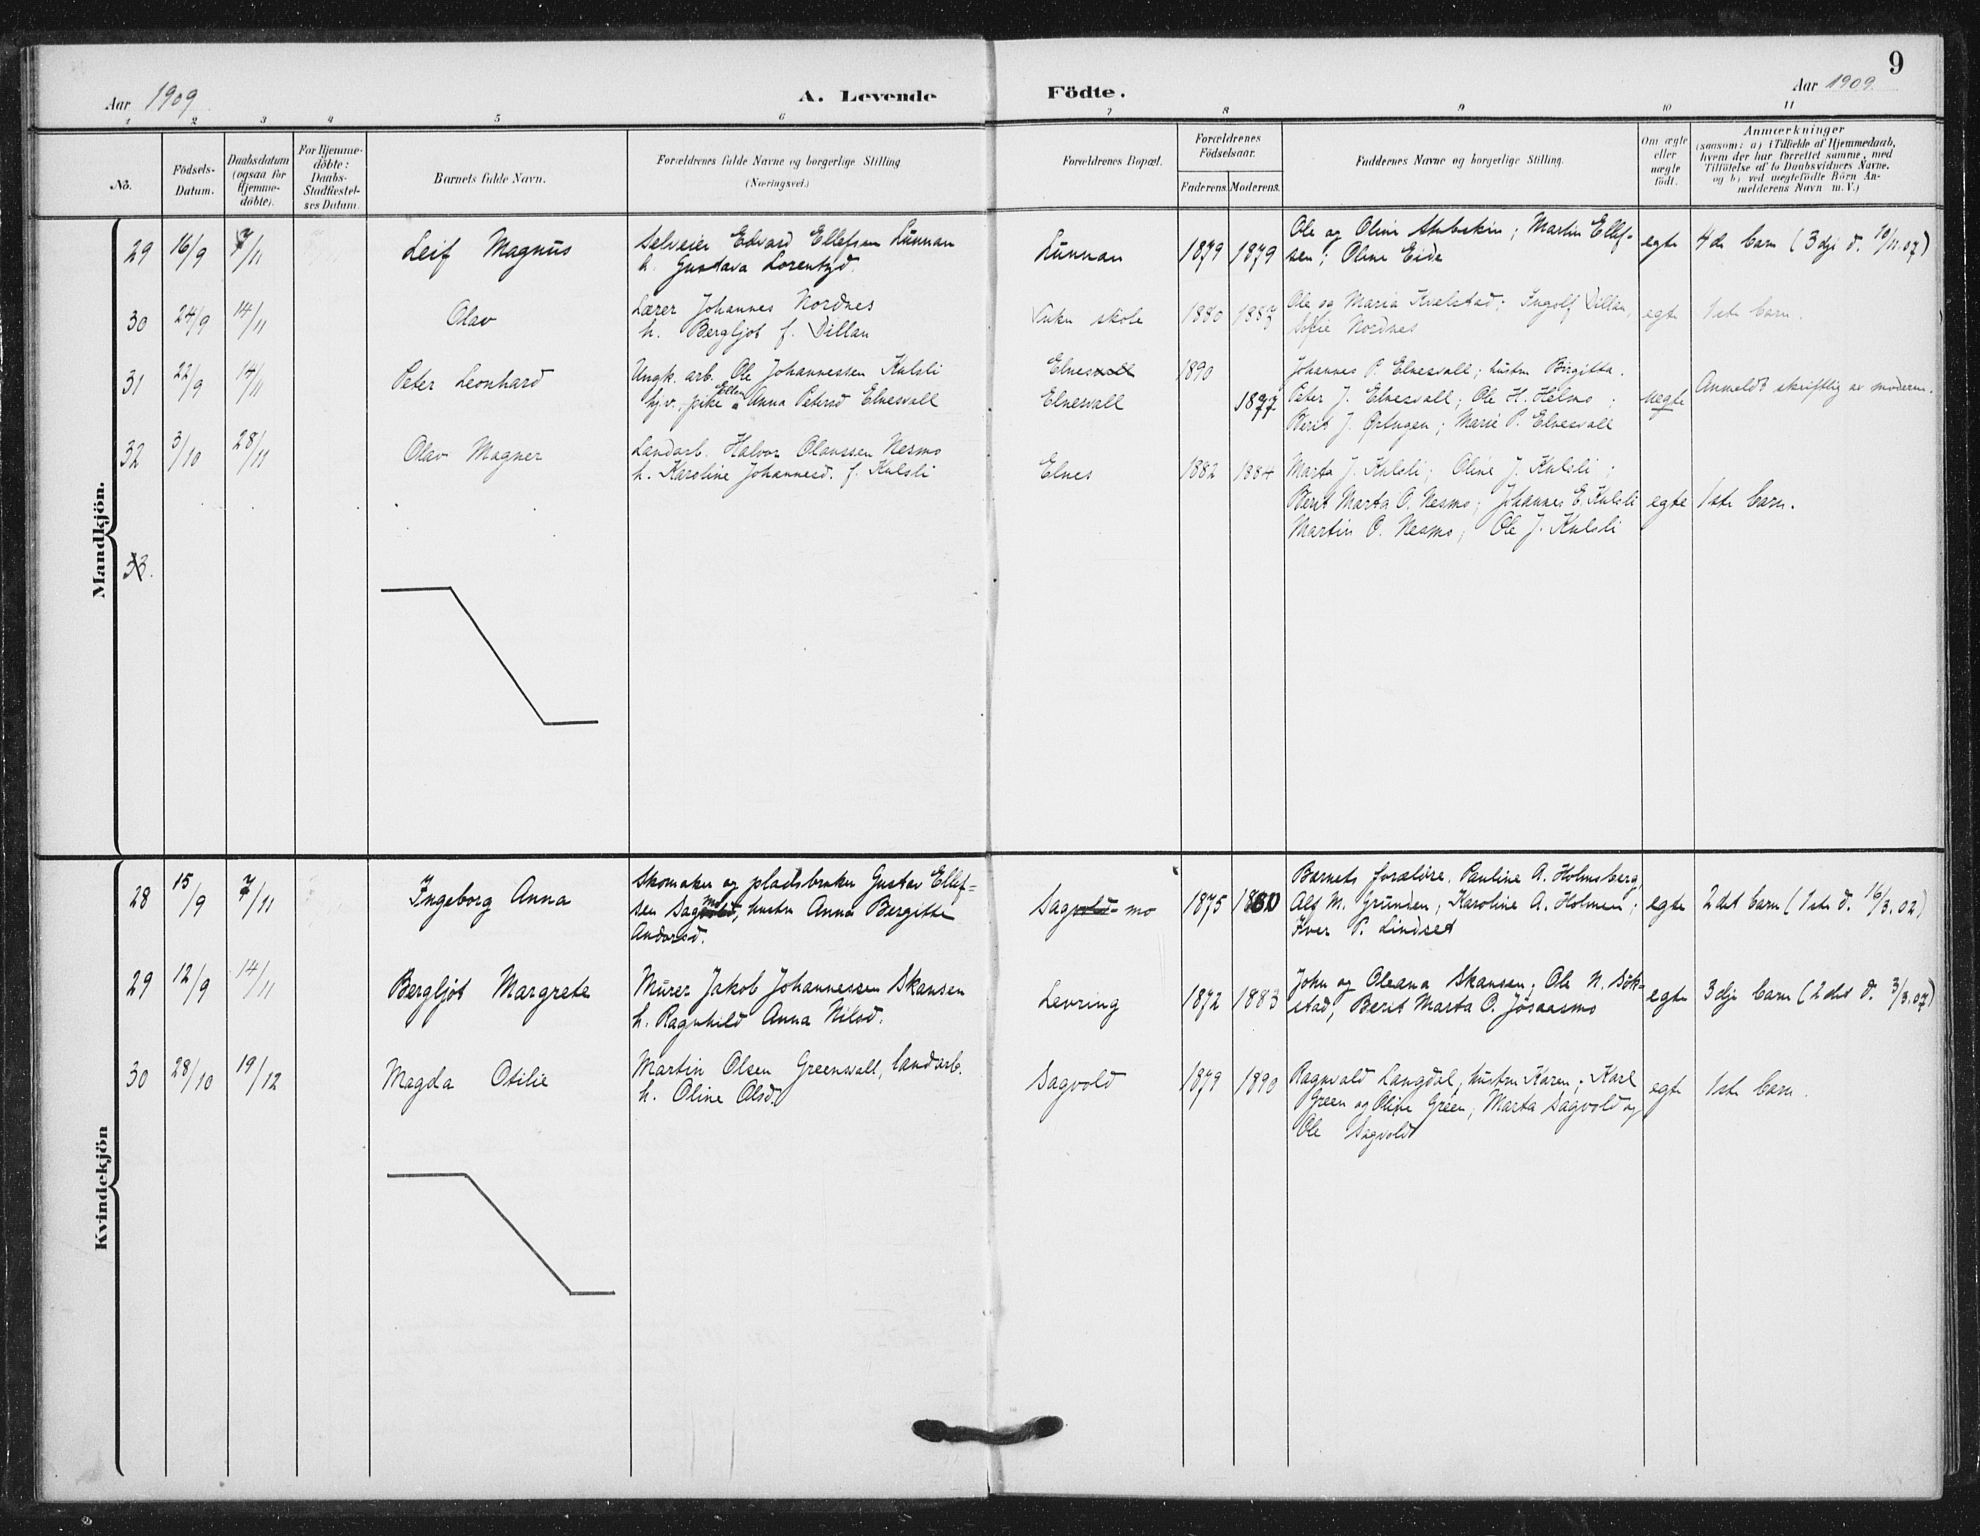 9
Aar 1909
A. Levende Födte.
Aar 1909
1 2 3 4 5 6 7 8 9 10 11
No.
Födsels-
Datum.
Daabsdatum
(ogsaa for
Hjemme-
döbte).
For Hjemme-
döbte:
Daabs-
Stadfæstel-
ses Datum.
Barnets fulde Navn.
Forældrenes fulde Navne og borgerlige Stilling
(Næringsvei.)
Forældrenes Bopæl.
Forældrenes
Födselsaar.
Faderens. Moderens.
Faddernes Navne og borgerlige Stilling.
Om ægte
eller
uægte
födt.
Anmærkninger
(saasom: a) i Tilfælde af Hjemmedaab,
hvem der har forrettet samme, med
Tilföielse af to Daabsvidners Navne.
og b) ved uægtefödte Börn An-
melderens Navn m. V.)
Mandkjön.
29 16/9 7/11 Leif Magnus
Selveier Edvard Ellefsen Lunnan
h. Gustava Lorentsd.
Lunnan 1879 1879
Ole og Oline ; Martin Ellef-
sen; Oline Eide
egte 4de barn (3dje d. 10/11.07)
30 24/9 14/11 Olav
Lærer Johannes Nordnes
h. Bergljot f. Dillan
Vuku skole 1880 1883
Ole og Maria Kvelstad; Ingolf Dillan,
Sofie Nordnes
egte 1ste barn.
31 22/9 14/11 Peter Leonhard
Ungk. arb. Ole Johannessen Kulsli
hj.v. pike Ellen Anna Petersd Elnesvall
Elnesvall 1890
Elnesvall 1877
Johannes P. Elnesvall; hustru Birgitta.
Peter J. Elnesvall; Ole H. Helmo;
Berit J. Örtugen; Marie P. Elnesvall
uegte Anmeldt skriftlig av moderen.
32 3/10 28/11 Olav Magner
Landarb. Halvor Olaussen Nesmo
h. Karoline Johannesd. f. Kulsli
Elnes 1882 1884
Marta J. Kulsli; Oline J. Kulsli;
Berit Marta O. Nesmo; Johannes E. Kulsli
Martin O. Nesmo; Ole J. Kulsli
egte 1ste barn.
33.
Kvindekjön
28 15/9 7/11 Ingeborg Anna
Skomaker og pladsbruker Gustav Ellef-
sen Sagvold mo, hustru Anna Bergitte
Andersd.
Sagvold-mo 1875 1880
Barnets forældre. Pauline A. Holmsberg,
Alf M. Grunden; Karoline A. Holmen;
Iver P. Lindset
egte 2det barn (1ste d. 16/3.02)
29 12/9 14/11 Bergljot Margrete
Murer Jakob Johannessen Skansen
h. Ragnhild Anna Nilsd.
Levring 1872 1883
John og Oleana Skansen; Ole N. Sök-
stad; Berit Marta O. Jösaasmo
egte 3dje barn (2det d. 3/3.07)
30 28/10 19/12 Magda Otilie
Martin Olsen Greenvall, landarb.
h. Oline Olsd.
Sagvold 1879 1890
Ragnvald Langdal, hustru Karen; Karl
Green og Oline Green; Marta Sagvold og
Ole Sagvold
egte 1ste barn.